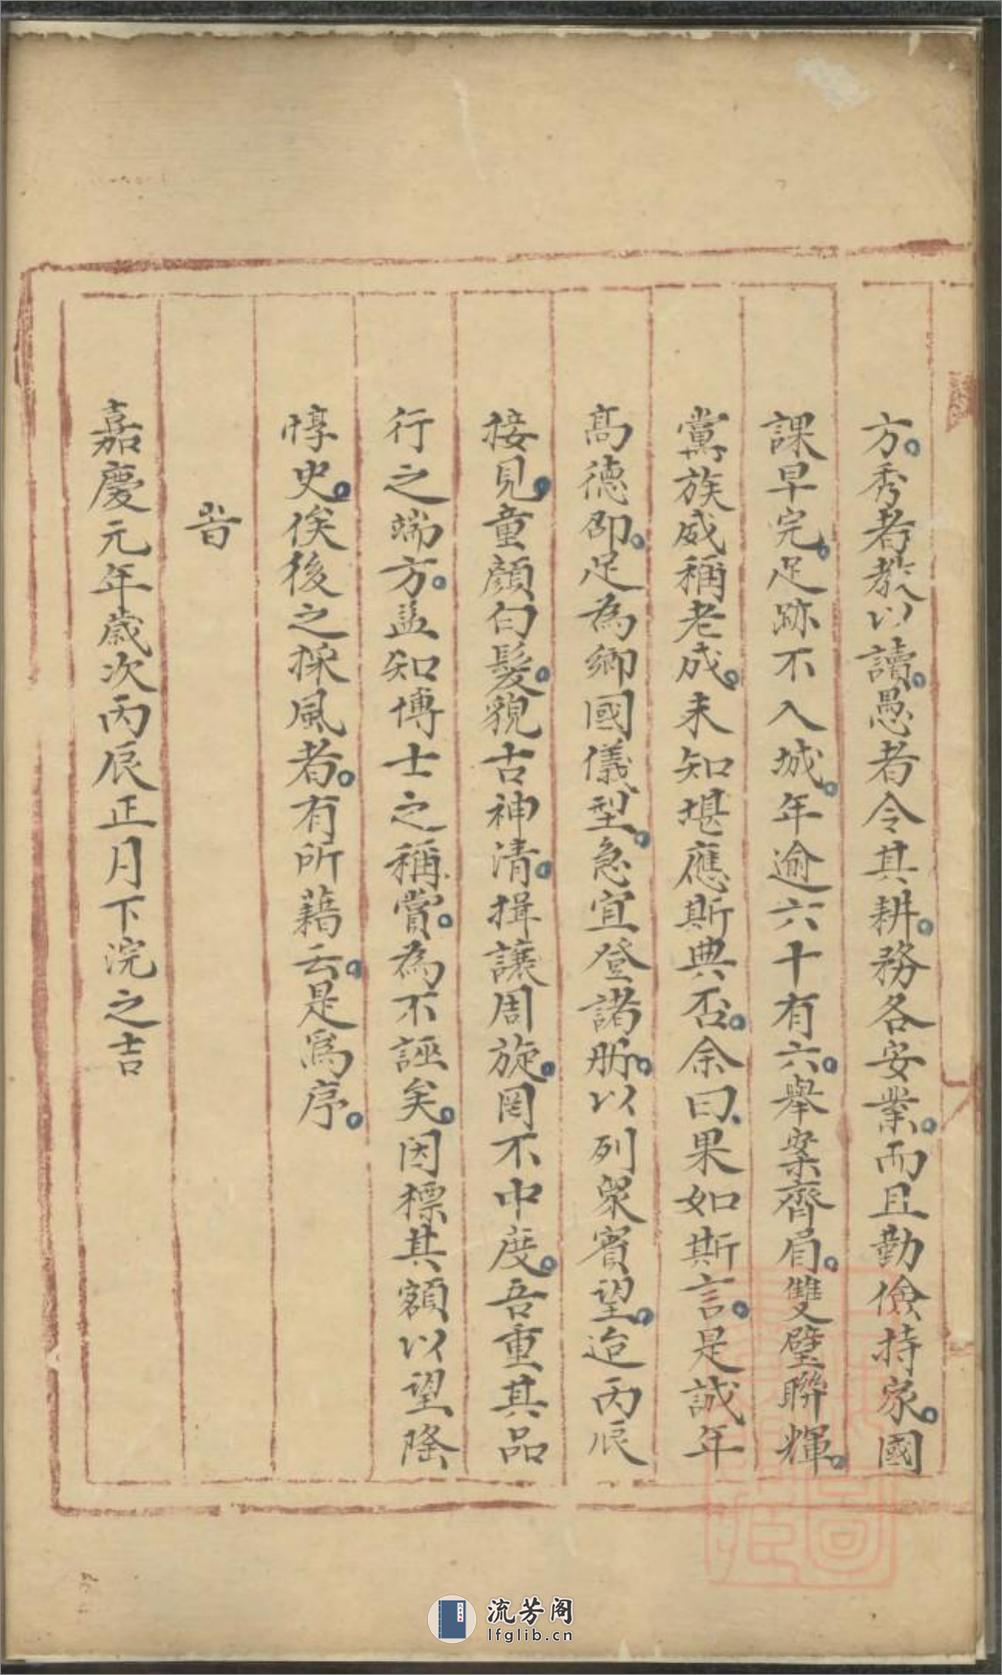 方。秀者教以讀。愚者令其耕。務各安業。而且勤儉持家。國
課早完。足跡不入城。年逾六十有六。舉案齊眉。雙璧聯輝。
黨族咸稱老成。未知堪應斯典否。余曰、果如斯言。是誠年
高德卲。足為鄉國儀型。急宜登諸所。以列衆賓望。迨丙辰
接見。童顏白髮。貌古神清。揖讓周旋。罔不中度。吾重其品
行之端方。益知博士之稱賞。為不誣矣。因標其額以望隆
惇史。俟後之採風者。有所藉云。是為序。
旹
嘉慶元年歲次丙辰正月下浣之吉
流芳阁
lfglib.cn